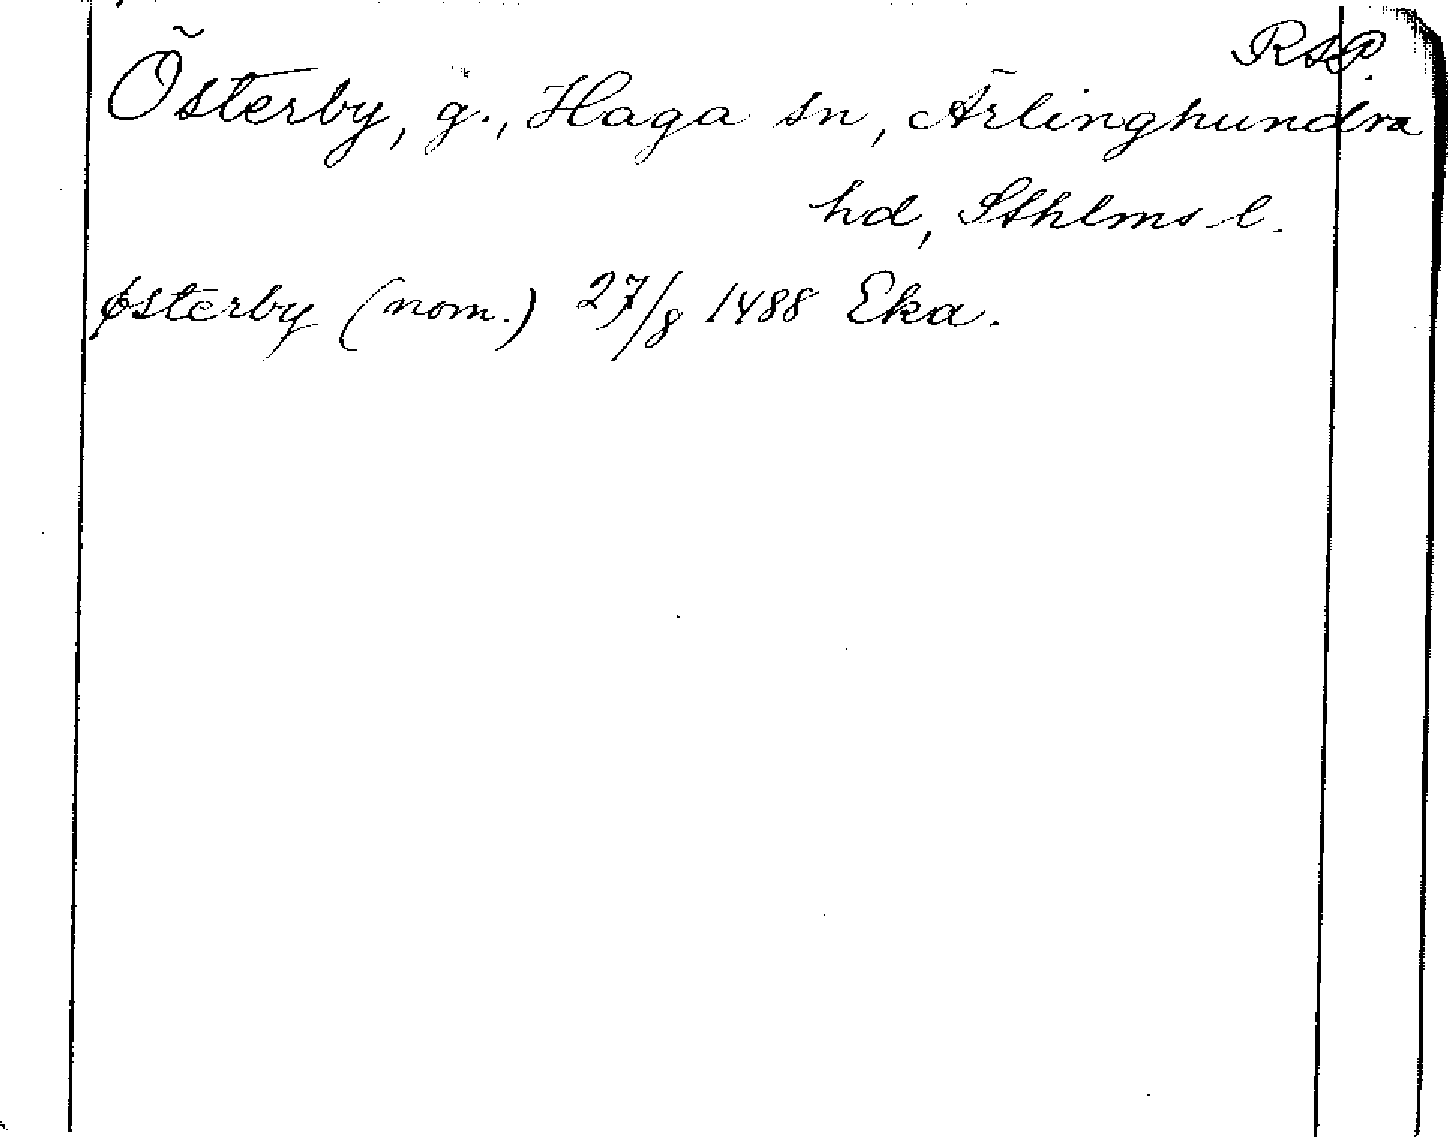 RAP.
Österby, g., Haga sn, Ärlinghundra
hd, Sthlms l.
østerby (nom.) 27/8 1488 Eka.